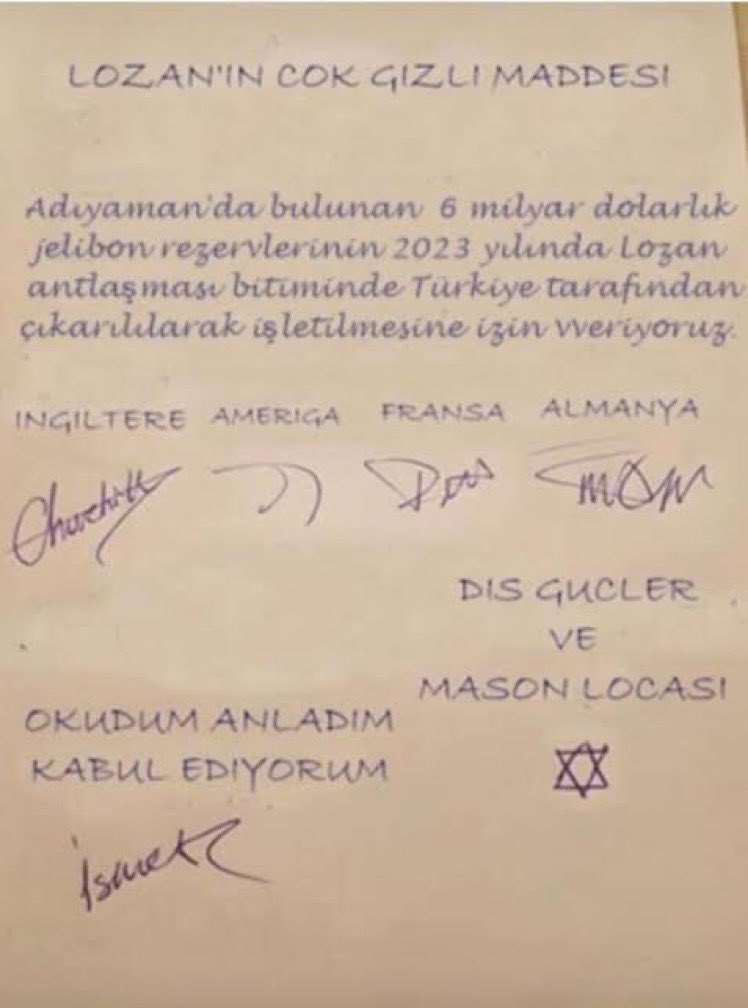 LOZAN'IN COK GIZLI MADDESI
Adıyaman'da bulunan 6 milyar dolarlık
jelibon rezervlerinin 2023 yılında Lozan
antlaşması bitiminde Türkiye tarafından
çıkarılılarak işletilmesine izin vveriyoruz.
INGILTERE AMERIGA FRANSA ALMANYA
Churchill
DIS GUCLER
VE
MASON LOCASI
OKUDUM ANLADIM
KABUL EDIYORUM
İsmet